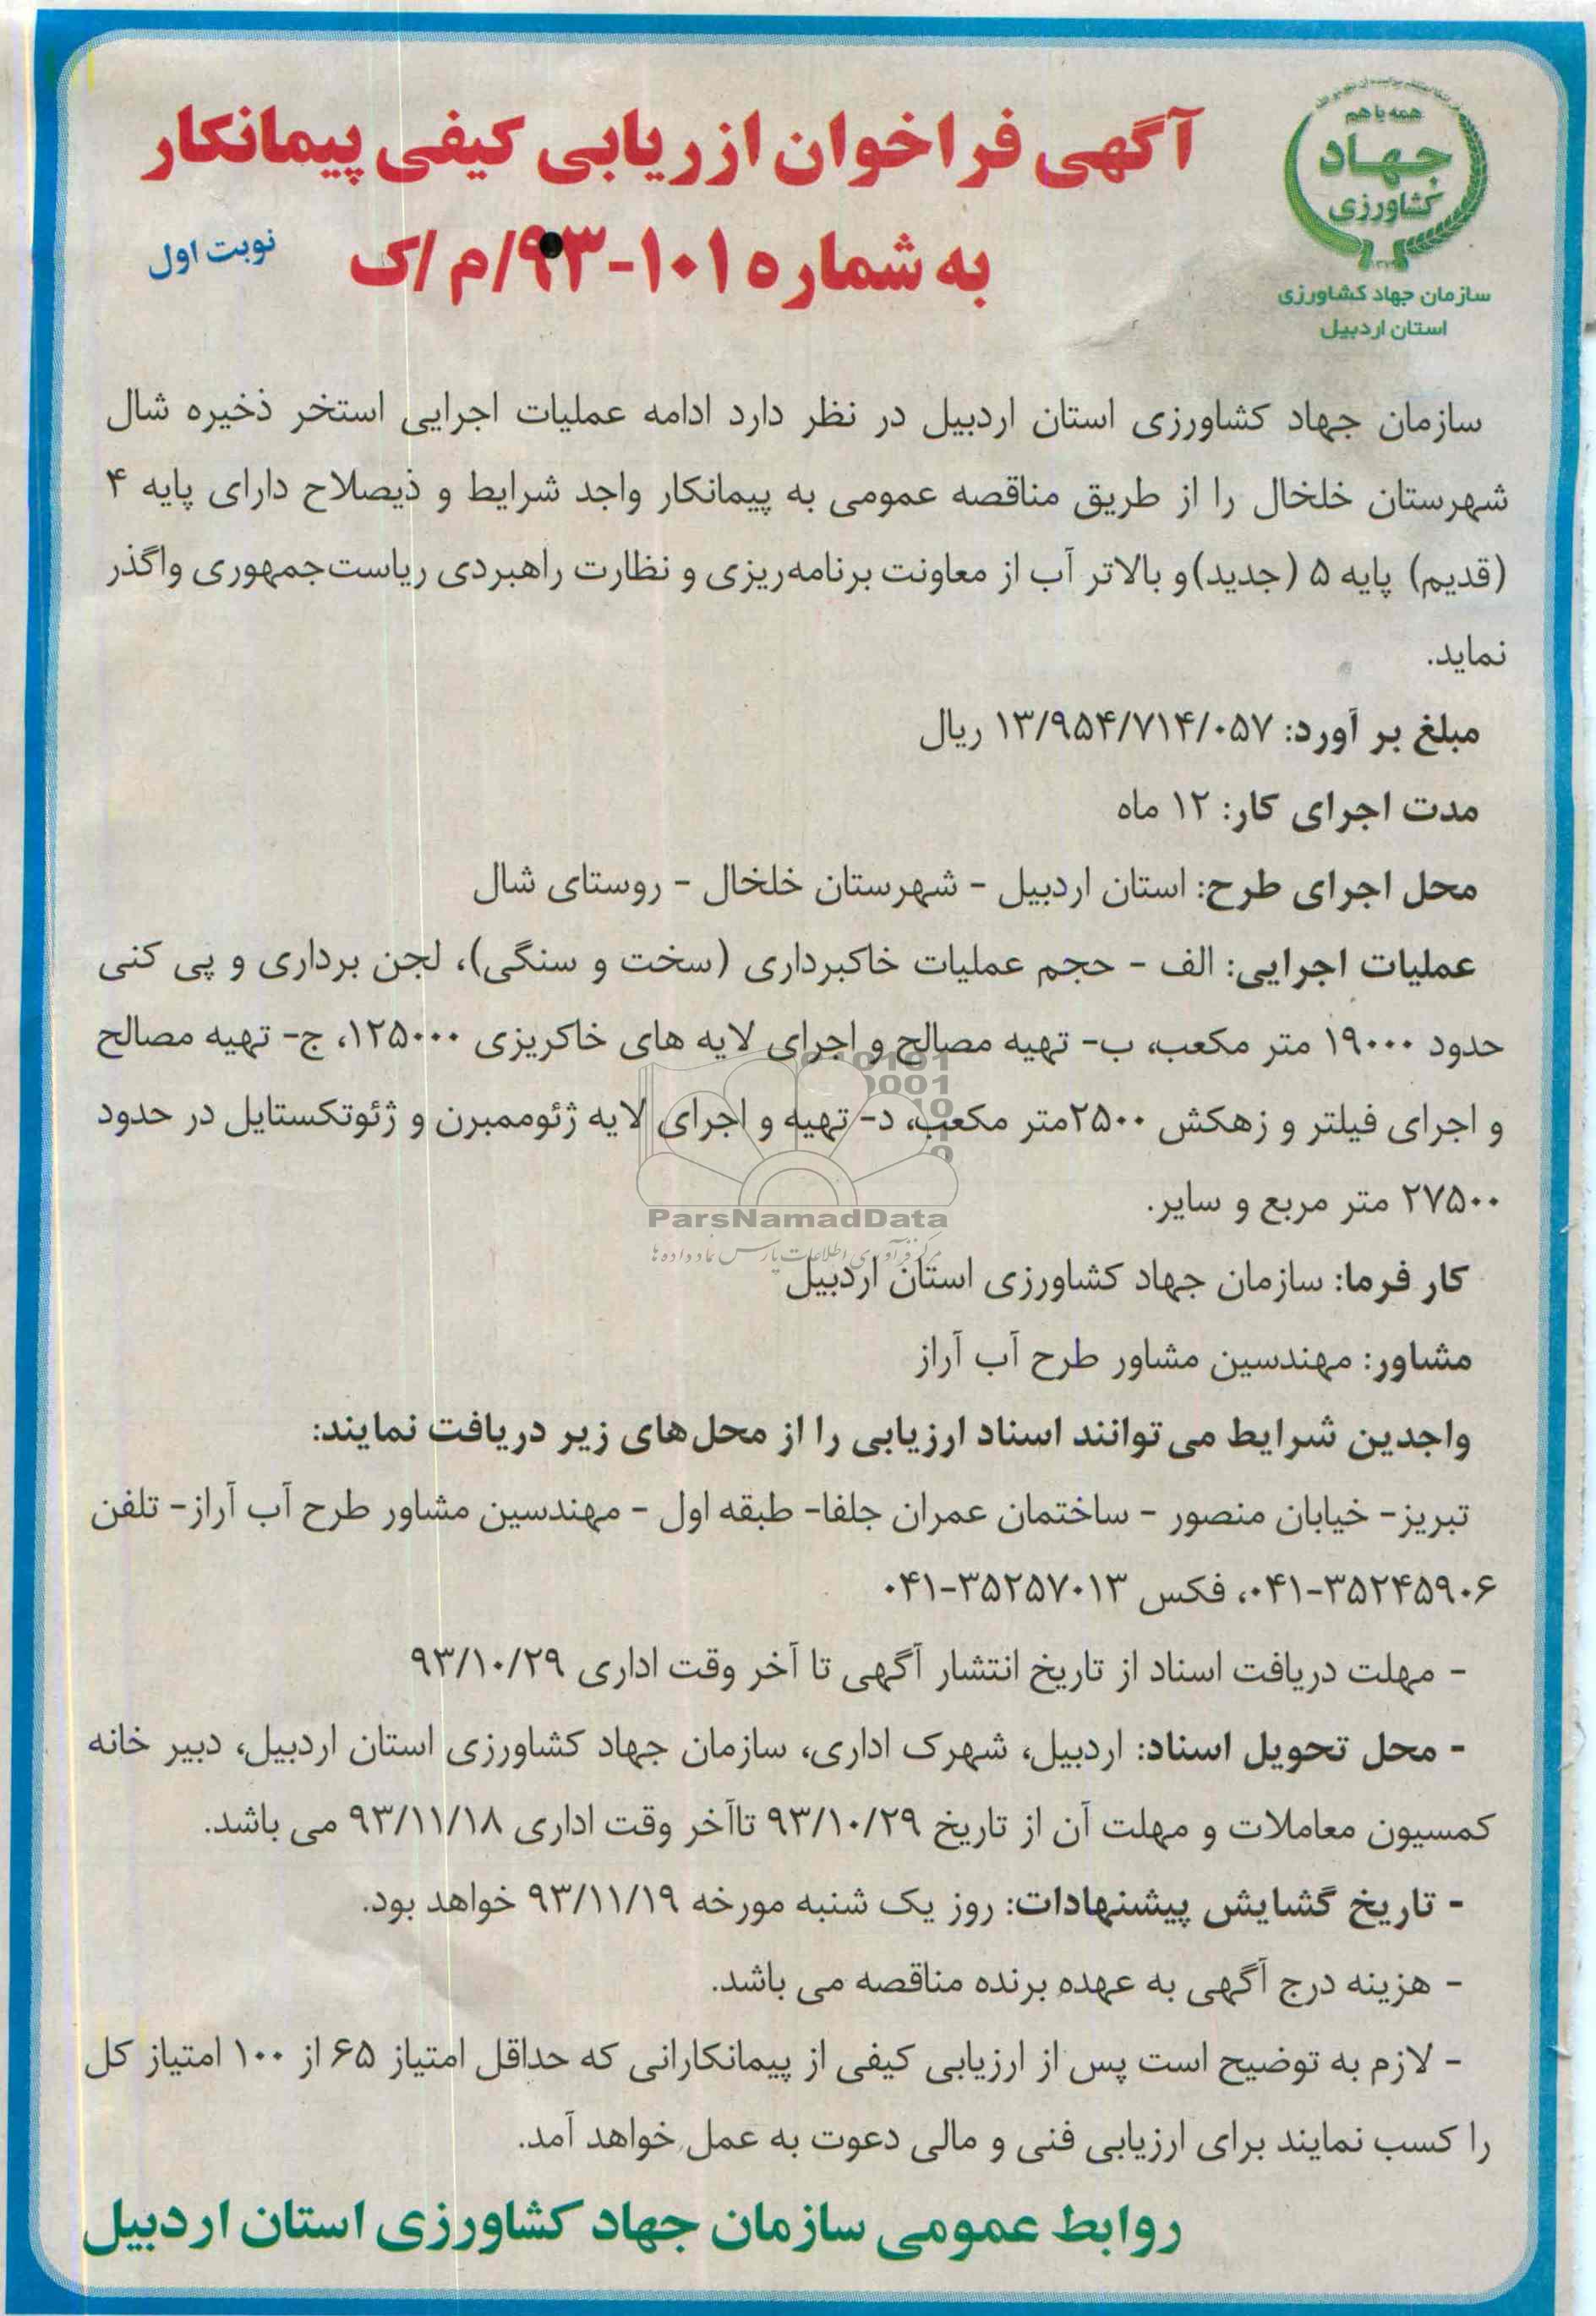 همه با هم
جهاد
کشاورزی
سازمان جهاد کشاورزی
استان اردبیل
آگهی فراخوان ارزیابی کیفی پیمانکار
به شماره ۱۰۱-۹۳/م/ک
نوبت اول
سازمان جهاد کشاورزی استان اردبیل در نظر دارد ادامه عملیات اجرایی استخر ذخیره شال
شهرستان خلخال را از طریق مناقصه عمومی به پیمانکار واجد شرایط و ذیصلاح دارای پایه ۴
(قدیم) پایه ۵ (جدید)و بالاتر آب از معاونت برنامه‌ریزی و نظارت راهبردی ریاست‌جمهوری واگذر
نماید.
مبلغ بر آورد: ۱۳/۹۵۴/۷۱۴/۰۵۷ ریال
مدت اجرای کار: ۱۲ ماه
محل اجرای طرح: استان اردبیل - شهرستان خلخال - روستای شال
عملیات اجرایی: الف - حجم عملیات خاکبرداری (سخت و سنگی)، لجن برداری و پی کنی
حدود ۱۹۰۰۰ متر مکعب، ب- تهیه مصالح و اجرای لایه های خاکریزی ۱۲۵۰۰۰، ج- تهیه مصالح
و اجرای فیلتر و زهکش ۲۵۰۰متر مکعب، د- تهیه و اجرای لایه ژئوممبرن و ژئوتکستایل در حدود
۲۷۵۰۰ متر مربع و سایر.
ParsNamadData
مرکز فرآوری اطلاعات پارس نماد داده ها
کار فرما: سازمان جهاد کشاورزی استان اردبیل
مشاور: مهندسین مشاور طرح آب آراز
واجدین شرایط می توانند اسناد ارزیابی را از محل‌های زیر دریافت نمایند:
تبریز- خیابان منصور - ساختمان عمران جلفا- طبقه اول - مهندسین مشاور طرح آب آراز- تلفن
۰۴۱-۳۵۲۴۵۹۰۶، فکس ۰۴۱-۳۵۲۵۷۰۱۳
- مهلت دریافت اسناد از تاریخ انتشار آگهی تا آخر وقت اداری ۹۳/۱۰/۲۹
- محل تحویل اسناد: اردبیل، شهرک اداری، سازمان جهاد کشاورزی استان اردبیل، دبیر خانه
کمسیون معاملات و مهلت آن از تاریخ ۹۳/۱۰/۲۹ تاآخر وقت اداری ۹۳/۱۱/۱۸ می باشد.
- تاریخ گشایش پیشنهادات: روز یک شنبه مورخه ۹۳/۱۱/۱۹ خواهد بود.
- هزینه درج آگهی به عهده برنده مناقصه می باشد.
- لازم به توضیح است پس از ارزیابی کیفی از پیمانکارانی که حداقل امتیاز ۶۵ از ۱۰۰ امتیاز کل
را کسب نمایند برای ارزیابی فنی و مالی دعوت به عمل خواهد آمد.
روابط عمومی سازمان جهاد کشاورزی استان اردبیل